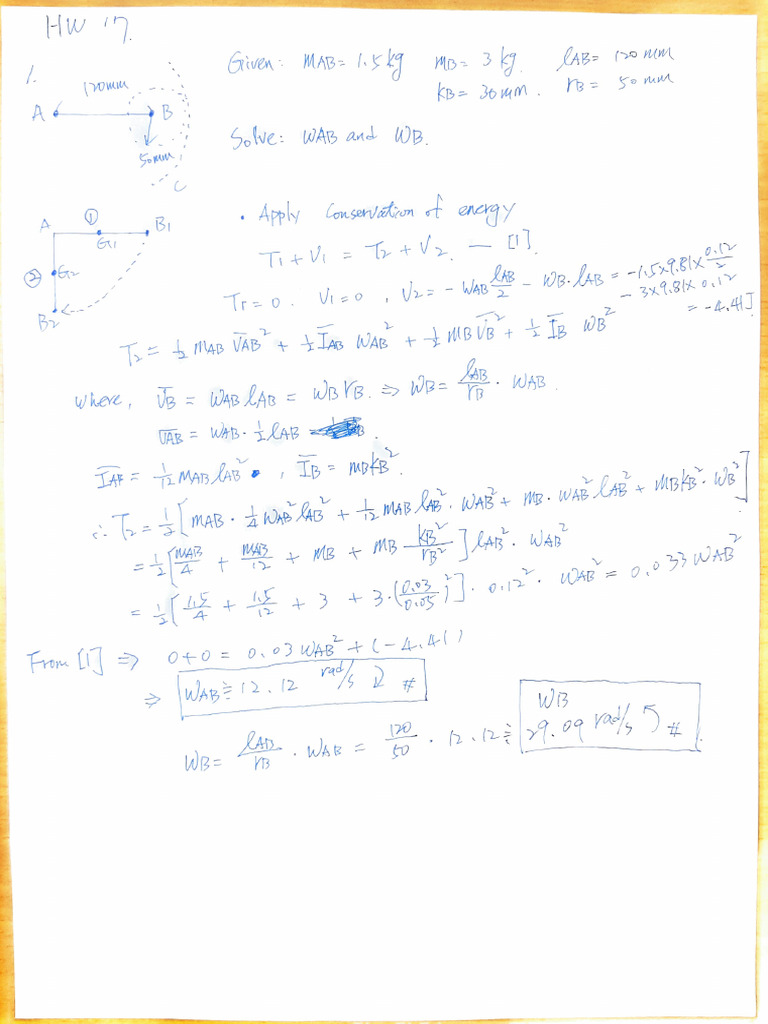 HW 17.
1.
Given: mAB = 1.5 kg mB = 3 kg. lAB = 120 mm
kB = 30 mm. rB = 50 mm
120mm
A B
50mm
C
Solve: WAB and WB.
• Apply Conservation of energy
A ① G1 B1
② G2
B2
T1 + V1 = T2 + V2. — [1].
T1 = 0. V1 = 0, V2 = - WAB lAB/2 - WB · lAB = -1.5×9.81× 0.12/2
- 3×9.81×0.12
= -4.41J
T2 = 1/2 mAB v̄AB² + 1/2 ĪAB WAB² + 1/2 mB v̄B² + 1/2 ĪB WB²
where, v̄B = WAB lAB = WB rB. ⇒ WB = lAB/rB · WAB.
v̄AB = WAB · 1/2 lAB
ĪAB = 1/12 mAB lAB², ĪB = mB kB².
∴ T2 = 1/2 [mAB · 1/4 WAB² lAB² + 1/12 mAB lAB² · WAB² + mB · WAB² lAB² + mB kB² · WB²]
= 1/2 [mAB/4 + mAB/12 + mB + mB kB²/rB²] lAB² · WAB²
= 1/2 [1.5/4 + 1.5/12 + 3 + 3·(0.03/0.05)²] · 0.12² · WAB² = 0.033 WAB²
From [1] ⇒ 0+0 = 0.03 WAB² + (-4.41)
⇒ WAB ≒ 12.12 rad/s ↻ #
WB = lAB/rB · WAB = 120/50 · 12.12 ≒ WB
29.09 rad/s ↺ #